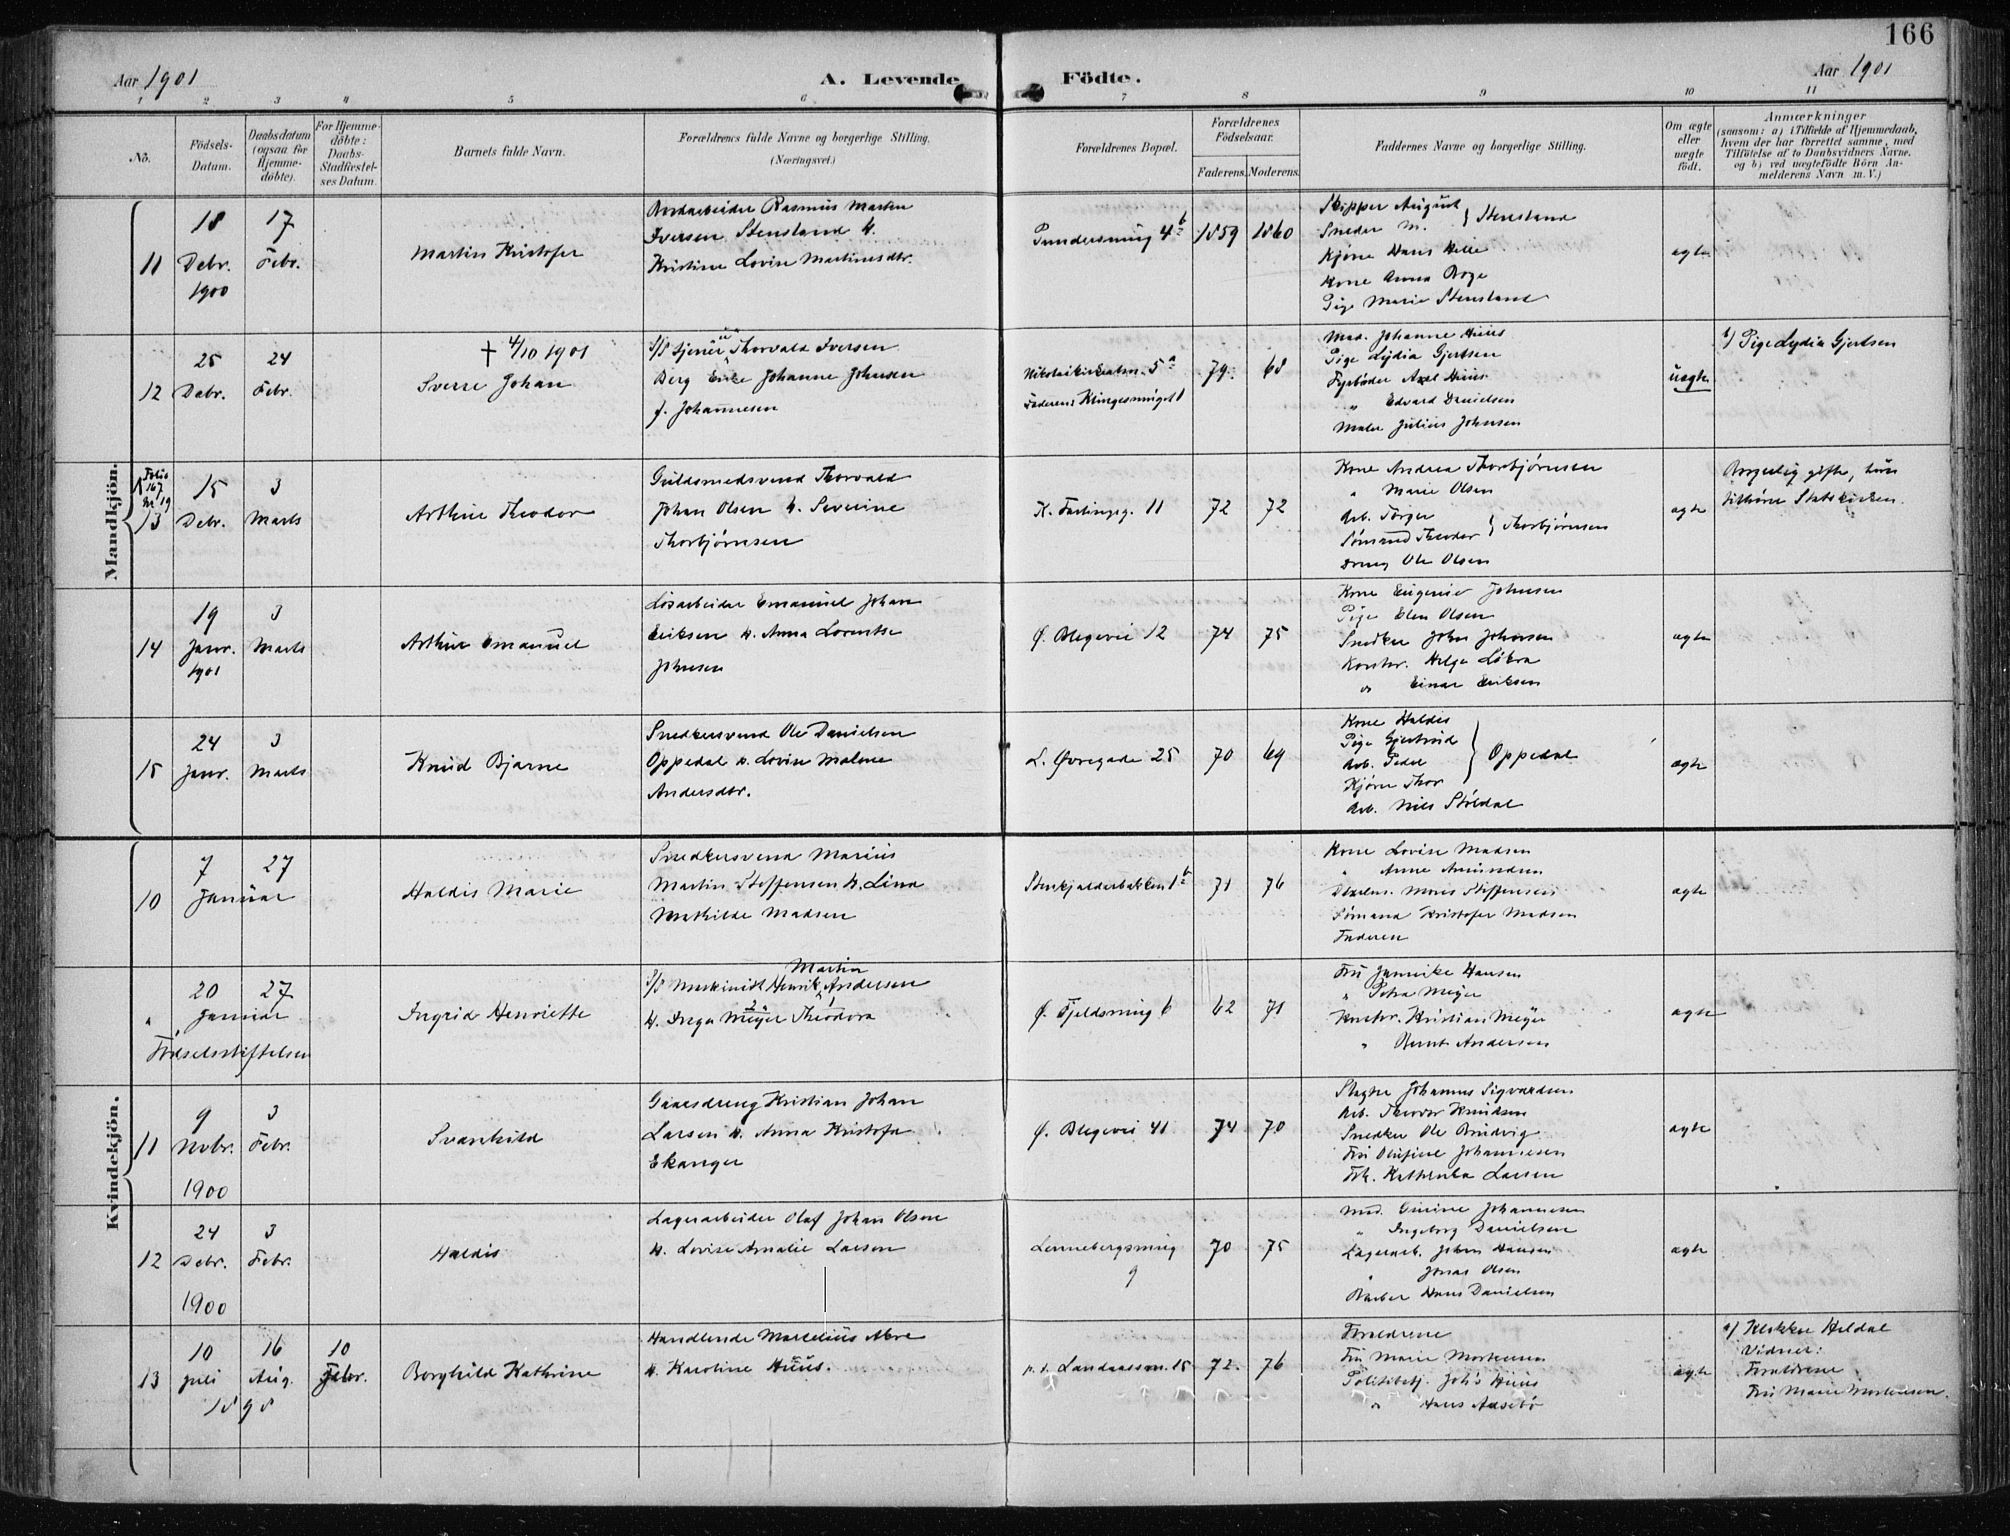 166
Aar 1901
A. Levende Födte.
Aar 1901
1 2 3 4 5 6 7 8 9 10 11
No.
Födsels-
Datum.
Daabsdatum
(ogsaa for
Hjemme-
döbte).
For Hjemme-
döbte:
Daabs-
Stadfæstel-
ses Datum.
Barnets fulde Navn.
Forældrenes fulde Navne og borgerlige Stilling.
(Næringsvei.)
Forældrenes Bopæl.
Forældrenes
Födselsaar.
Faderens. Moderens.
Faddernes Navne og borgerlige Stilling.
Om ægte
eller
uægte
födt.
Anmærkninger
(saasom: a) i Tilfælde af Hjemmedaab,
hvem der har forrettet samme, med
Tilföielse af to Daabsvidners Navne,
og b) ved uægtefödte Börn An-
melderens Navn m. V.)
Mandkjön.
11
18
Debr.
1900
17
Febr.
Martin Kristofer
Rasmus Martin
Iversen Stensland &.
Kristine Lovise Martinesdtr.
4b
1859 1860
Skipper August
Sneder M. } Stensland
Hans Hille
Kone Anna Boge
Pige Marie Stensland
ægte
12
25
Debr.
24
Febr.
† 4/10 1901
Sverre Johan
Thorvald Iversen
Berg Enke Johanne Johnsen
f. Johannesen
Nikolaikirkealm. 5a
Faderen: Klingesmuget 1
79. 68
Mad. Johanne Huus
Pige Lydia Gjertsen
Fyrbøder Axel Huus
" Edvard Danielsen
Maler Julius Johnsen
uægte
b/ Pige Lydia Gjertsen
Folio
167
Nr 19
13
15
Debr.
3
Marts
Arthur Theodor
Guldsmedsvend Thorvald
Johan Olsen &. Severine
Thorbjørnsen
11
72 72
Kone Andrea Thorbjørnsen
" Marie Olsen
Arb. Torger
Sømand Theodor } Thorbjørnsen
Dreng Ole Olsen
ægte
Borgerlig gifte, hun
tilhører Statskirken.
14
19
Janr.
1901
3
Marts
Arthur Emanuel
Løsarbeider Emanuel Johan
Eriksen &. Anna Lorentse
Johnsen
Ø. Blegevei 12
74 75
Kone Eugenie Johnsen
Pige Elen Olsen
Snedker John Johnsen
Kontor. Helge Løkra
" Einar Eriksen
ægte
15
24
Janr.
3
Marts
Knud Bjarne
Snedkersvend Ole Danielsen
Oppedal &. Lovise Malene
Andersdtr.
L. Øvregade 25
70 69
Kone Haldis
Pige Gjertrud
Arb. Peder
Kjører Thor } Oppedal
Arb. Nils Støldal
ægte
Kvindekjön.
10
7 27
Januar
Haldis Marie
Snedkersvend Marius
Martin Steffensen &. Lina
Mathilde Madsen
Stenkjelderbakken 1b
71 76
Kone Lovise Madsen
" Anne Amundsen
Steffensen
Sømand Kristofer Madsen
Faderen
ægte
"
20 27
Januar
Fødselsstiftelsen
Ingrid Henriette
Martin
I/S Maskinist Henrik Andersen
&. Inga Meyer Theodora
Ø. Fjeldsmug 6
62 71
Fru Jannike Hansen
" Petra Meyer
Kontor. Kristian Meyer
" Bernt Andersen
ægte
11
9
Novbr.
1900
3
Febr.
Svanhild
Gaardsdreng Kristian Johan
Larsen &. Anna Kristofa
Ekanger
Ø. Blegevei 41
74 70
Slagter Johannes Sigvardsen
Arb. Theodor Knudsen
Snedker Ole Bruvig
Fru Olufine Johannesen
Frk. Kathinka Larsen
ægte
12
24
Debr.
1900
3
Febr.
Haldis
Lagerarbeider Olaf Johan Olsen
&. Lovise Amalie Larsen
Lennebergsmug
9
70 75
Mad. Johannesen
" Ingeborg Danielsen
Lagerarb. Johan Hansen
" Jonas Olsen
Barber Hans Danielsen
ægte
13
10
Juli
16
Aug.
1898
10
Febr.
Borghild Kathrine
Handlende Marcelius Abre
&. Karoline Huus.
p. t. Landaasm. 15
72. 76
Forældrene
Fru Marie Mortensen
Politibetj. Johs Huus
" Hans Aasebø
ægte
a/ Klokker Heldal
Vidner:
Forældrene
Fru Marie Mortensen.